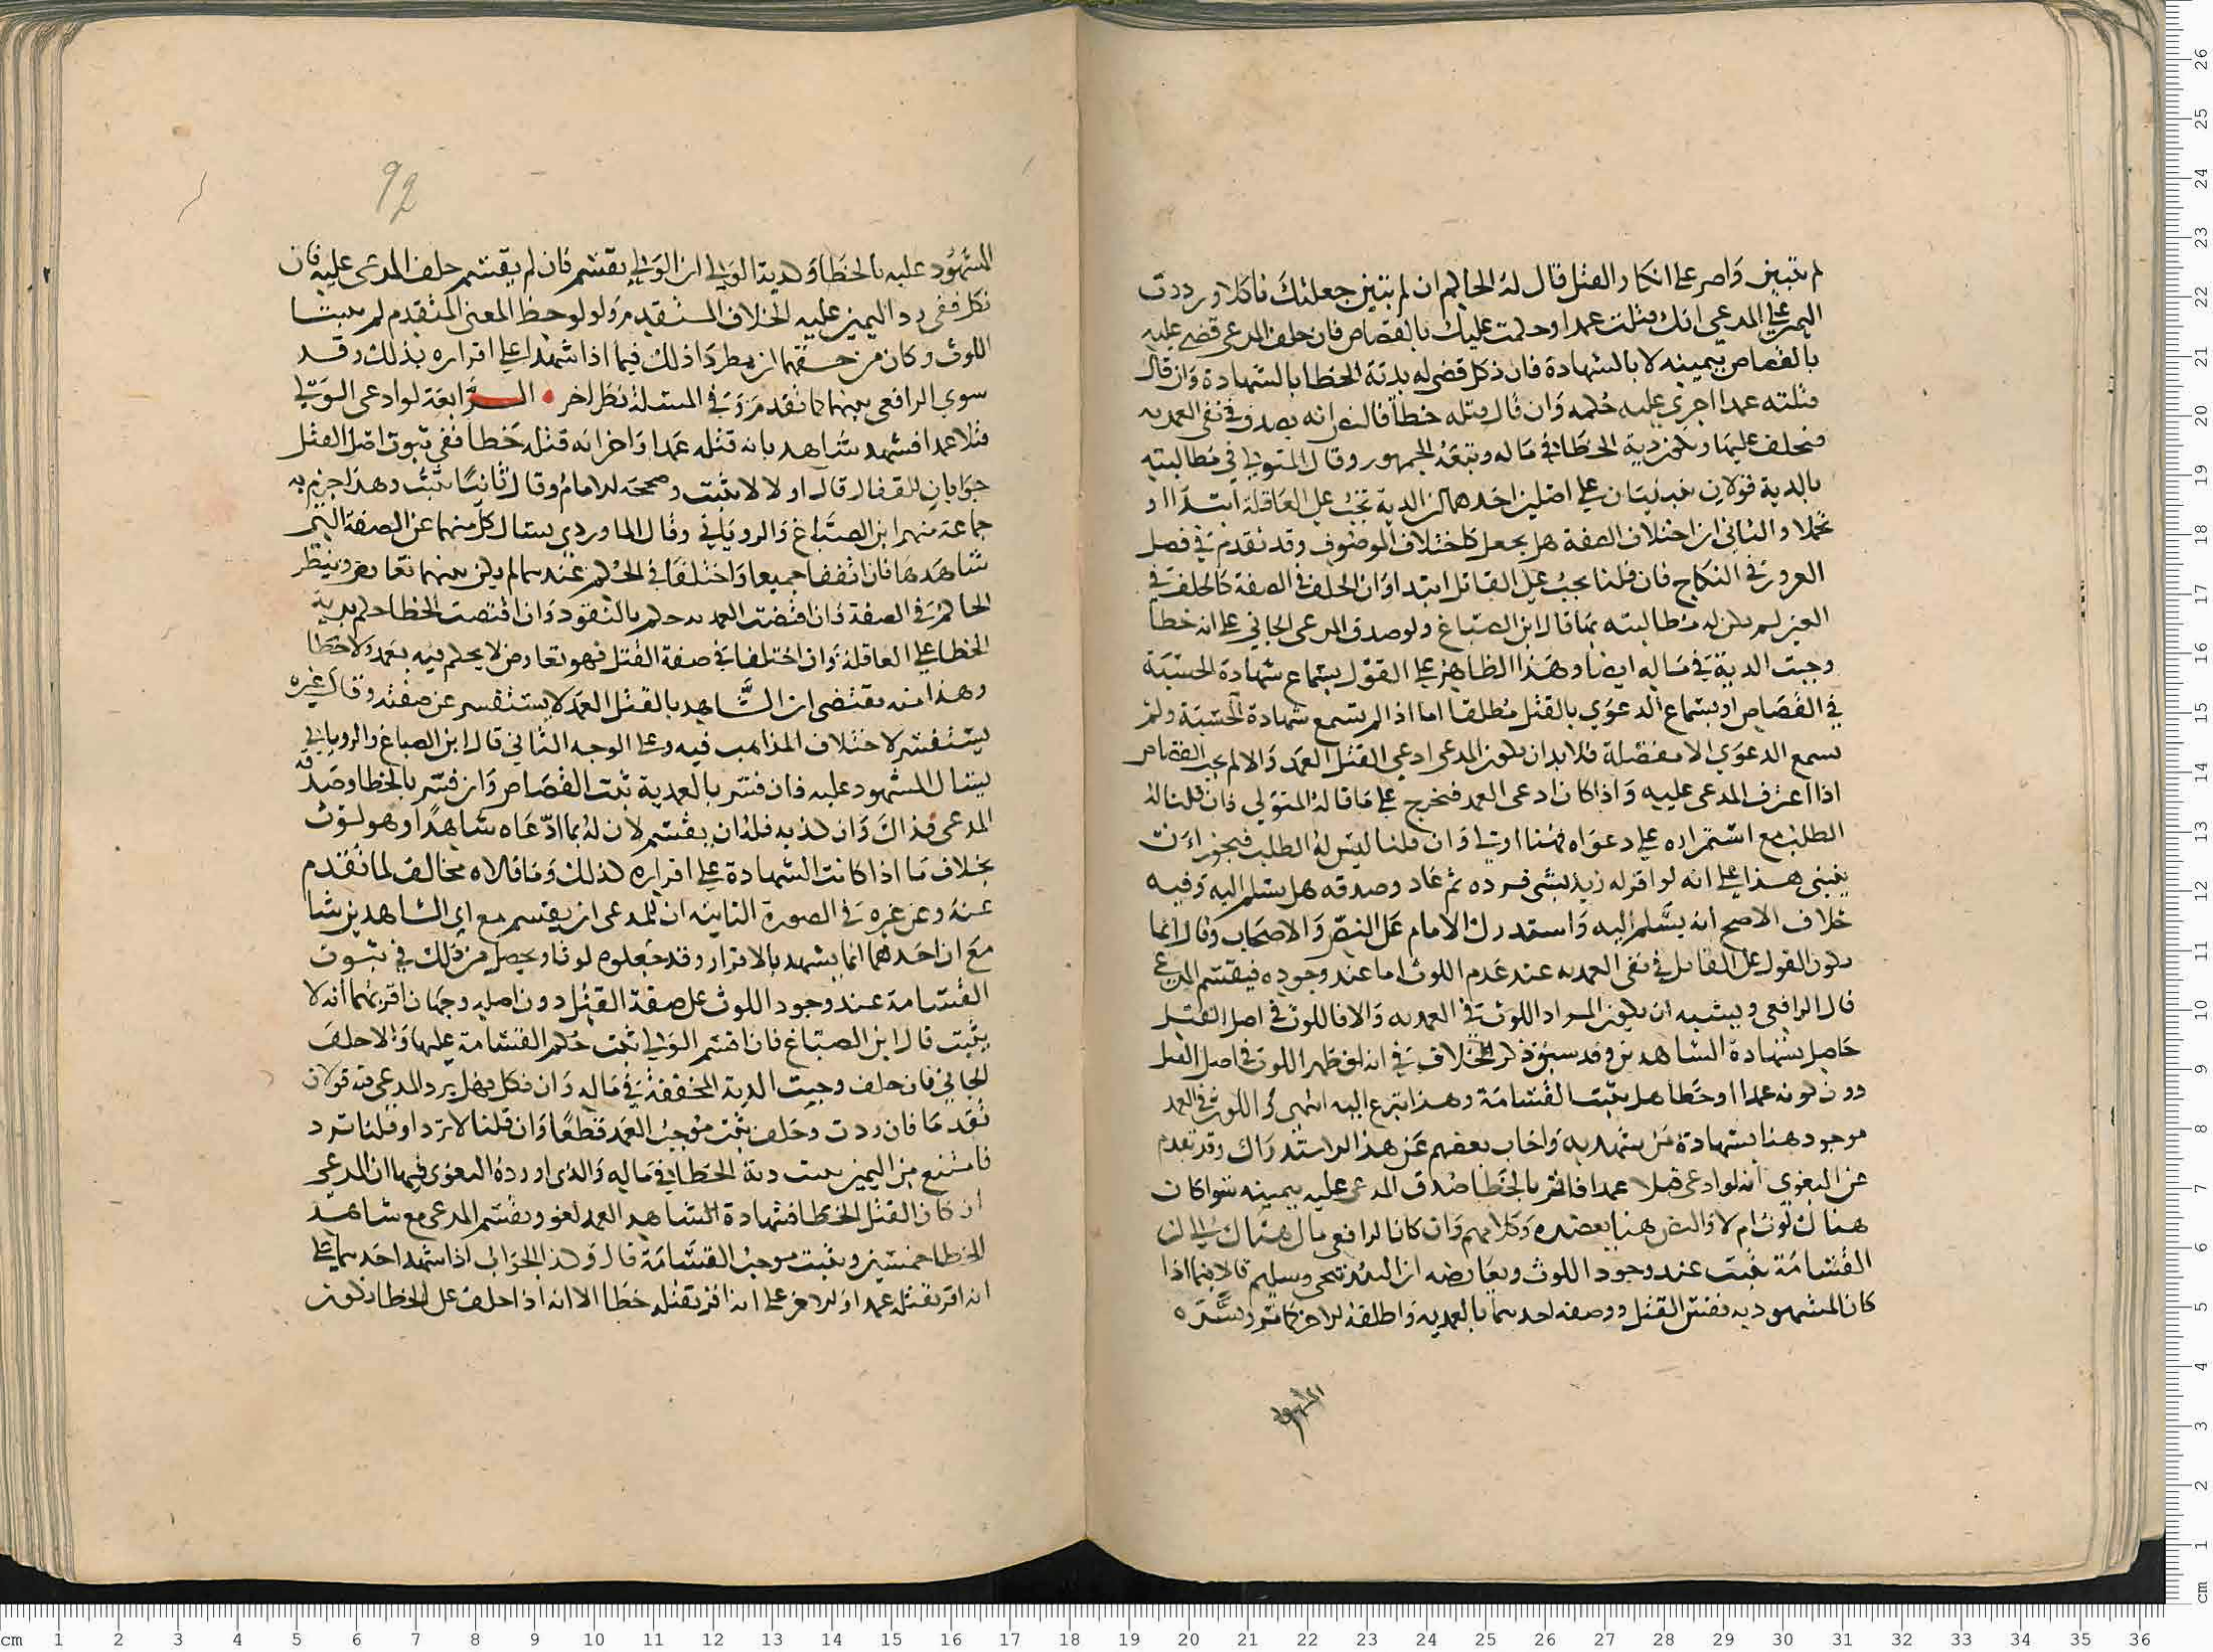 لم يتبين واصر على انكار القتل قال له الحاكم ان لم تبين جعلتك ناكلا ورددت
اليمين على المدعي انك قتلت عمدا وحكمت عليك بالقصاص فان حلف المدعي قضي عليه
بالقصاص بيمينه لا بالشهادة فان نكل قضي له بدية الخطا بالشهادة وان قال
قتلته عمدا اجري عليه حكمه وان قال قتله خطأ فالقول انه يصدق في نفي العمدية
فيحلف عليها وتكون دية الخطا في ماله وتبعه الجمهور وقال المتولي في مطالبته
بالدية قولان مبنيان على اصلين احدهما ان الدية تجب على العاقلة ابتداا او
تحملا والثاني ان اختلاف الصفة هل يجعل كاختلاف الموصوف وقد تقدم في فصل
الغرور في النكاح فان قلنا يجب على القاتل ابتدا وان الخلف في الصفة كالخلف في
العين لم يكن له مطالبته بما قال ابن الصباغ ولو صدق المدعي الجاني على انه خطأ
وجبت الدية في ماله ايضا وهذا الظاهر على القول بسماع شهادة الحسبة
في القصاص او بسماع الدعوي بالقتل مطلقا اما اذا لم تسمع شهادة الحسبة ولم
تسمع الدعوي الا مفصلة فلا بد ان يكون المدعي ادعى القتل العمد والا لم يجب القصاص
اذا اعترف المدعى عليه واذا كان ادعى العمد فتخرج على ما قاله المتولي فان قلنا له
الطلب مع استمراره على دعواه فهنا اولى وان قلنا ليس له الطلب فيجوز ان
يبنى هذا على انه لو اقر له زيد بشي فرده ثم عاد وصدقه هل يسلم اليه وفيه
خلاف الاصح انه يسلم اليه واستدرك الامام على النص والاصحاب وقال انما
يكون القول على القاتل في نفي العمدية عند عدم اللوث اما عند وجوده فيقسم المدعي
قال الرافعي ويشبه ان يكون المراد اللوث في العمدية والا فاللوث في اصل القتل
حاصل بشهادة الشاهدين وقد سبق ذكر الخلاف في انه لو ظهر اللوث في اصل القتل
دون كونه عمدا او خطا هل يثبت القسامة وهذا ينزع اليه انتهى واللوث في العمد
موجود هنا بشهادة من شهد به واجاب بعضهم عن هذا الاستدراك وقد تقدم
عن البغوي انه لو ادعى قتلا عمدا فاقر بالخطا صدق المدعى عليه بيمينه سوا كان
هناك لوث ام لا والنص هنا يعضده وكلامهم وان كان الرافعي مال هناك الى ان
القسامة تثبت عند وجود اللوث ويعارضه
كان المشهود به نفس القتل ووصفه احدهما بالعمدية واطلقه الاخر كما مر وفسره
المشهود
92
المشهود عليه بالخطا وكذبه الولي ان الولي يقسم فان لم يقسم حلف المدعى عليه فان
نكل ففي رد اليمين عليه الخلاف المتقدم ولو لوحظ المعنى المتقدم لم يثبتا
اللوث وكان من حقهما ان يطردا ذلك فيما اذا شهدا على اقراره بذلك وقد
سوى الرافعي بينهما كما تقدم وفي المسئلة نظر اخر • الرابعة لو ادعى الولي
قتلا عمدا فشهد شاهد بانه قتله عمدا واخر انه قتله خطأ ففي ثبوت اصل القتل
جوابان للقفال قال اولا لا يثبت وصححه الامام وقال ثانيا يثبت وهذا جزم به
جماعة منهم ابن الصباغ والروياني وقال الماوردي يسال كل منهما عن الصفة التي
شاهدها فان اتفقا جميعا واختلفا في الحكم عندهما لم يكن بينهما تعارض وينظر
الحاكم في الصفة فان اقتضت العمدية حكم بالقود وان اقتضت الخطا حكم بدية
الخطا على العاقلة وان اختلفا في صفة القتل فهو تعارض لا يحكم فيه بعمد ولا خطا
وهذا منه يقتضي ان الشاهد بالقتل العمد لا يستفسر عن صفته وقال غيره
يستفسر لاختلاف المذاهب فيه وعلى الوجه الثاني قال ابن الصباغ والروياني
يسال المشهود عليه فان فسر بالعمدية ثبت القصاص وان فسر بالخطا وصدقه
المدعي فذاك وان كذبه فله ان يقسم لان له بما ادعاه شاهدا وهو لوث
بخلاف ما اذا كانت الشهادة على اقراره كذلك وما قالاه مخالف لما تقدم
عنه وعن غيره في الصورة الثانية ان للمدعي ان يقسم مع اي الشاهدين شا
مع ان احدهما انما يشهد بالاقرار وقد جعلوه لوثا ويحصل من ذلك في ثبوت
القسامة عند وجود اللوث على صفة القتل دون اصله وجهان اقربهما انه لا
يثبت قال ابن الصباغ فان اقسم الولي ثبت حكم القسامة عليها والا حلف
الجاني فان حلف وجبت الدية المخففة في ماله وان نكل فهل يرد المدعي فيه قولان
تقدما فان ردت وحلف ثبت موجب العمد قطعا وان قلنا لا ترد او قلنا ترد
فامتنع من اليمين ثبت دية الخطا في ماله والذي اورده البغوي فيها ان المدعي
ان كان القتل الخطا فشهادة الشاهد العمد لغو ويقسم المدعي مع شاهد
الخطا خمسين ويثبت موجب القسامة قال وكذا الجواب اذا شهد احدهما على
انه اقر بقتله عمدا والاخر على انه اقر بقتله خطا الا انه اذا حلف على الخطا تكون